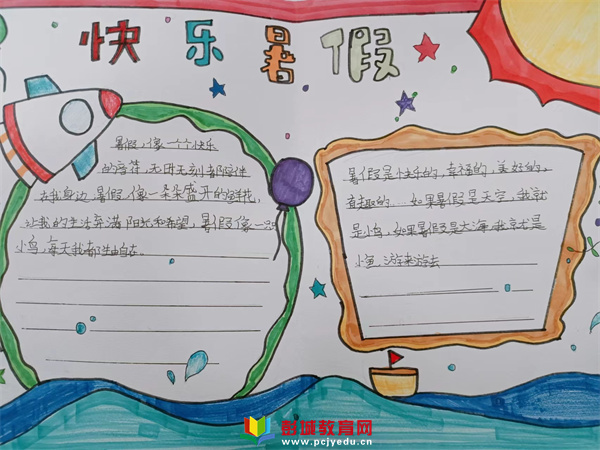 快乐暑假
暑假，像一个个快乐
的音符，无时无刻都陪伴
在我身边，暑假，像一朵朵盛开的鲜花，
让我的生活充满阳光和希望，暑假像一只
小鸟，每天我都自由自在。
暑假是快乐的，幸福的，美好的，
有趣的……如果暑假是天空，我就
是小鸟，如果暑假是大海，我就是
小鱼，游来游去
彭城教育网
www.pcjyedu.cn